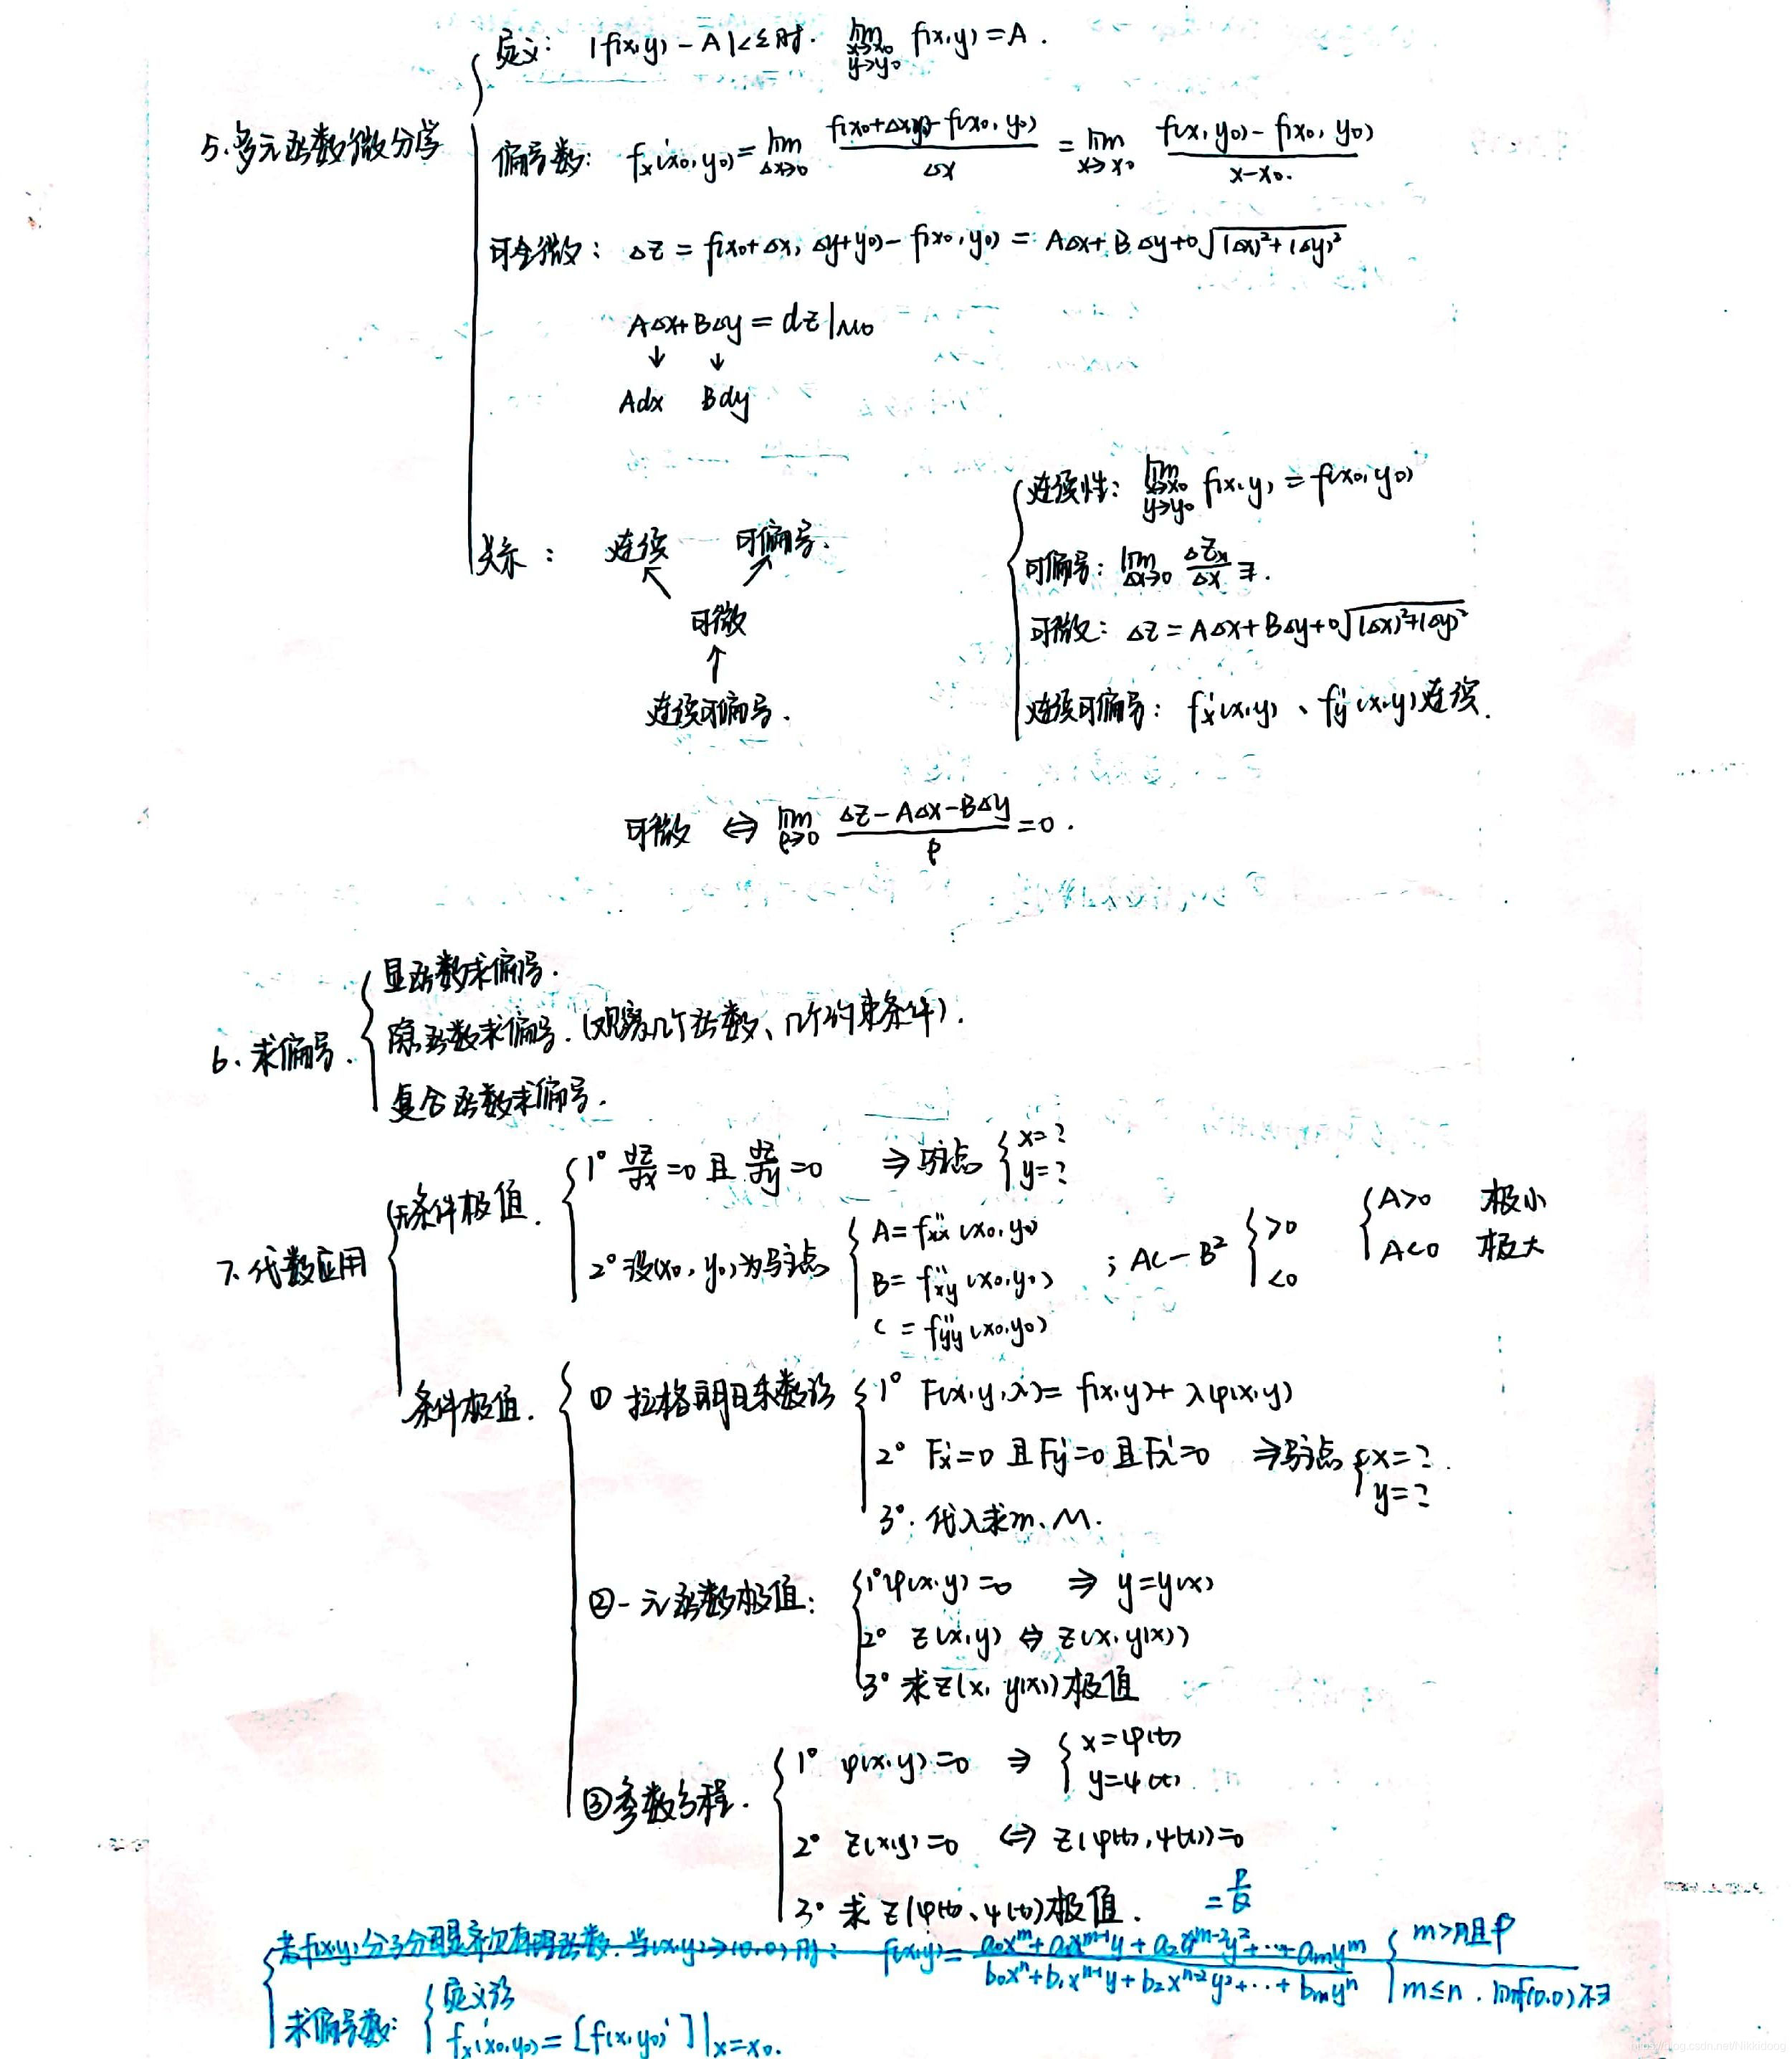 5.多元函数微分学
定义: |f(x,y)-A|<ε时. lim x→x₀ y→y₀ f(x,y)=A.
偏导数: fₓ'(x₀,y₀)=lim Δx→0 (f(x₀+Δx,y₀)-f(x₀,y₀))/Δx = lim x→x₀ (f(x,y₀)-f(x₀,y₀))/(x-x₀).
可全微: Δz=f(x₀+Δx,Δy+y₀)-f(x₀,y₀)=AΔx+BΔy+o√((Δx)²+(Δy)²)
AΔx+BΔy=dz|M₀
↓ ↓
Adx Bdy
关系: 连续 可偏导.
可微
↑
连续可偏导.
连续性: lim x→x₀ y→y₀ f(x,y)=f(x₀,y₀)
可偏导: lim Δx→0 Δzₓ/Δx ∃.
可微: Δz=AΔx+BΔy+o√((Δx)²+(Δy)²)
连续可偏导: fₓ'(x,y)、f_y'(x,y)连续.
可微 ⇔ lim ρ→0 (Δz-AΔx-BΔy)/ρ=0.
6.求偏导.
显函数求偏导.
隐函数求偏导.(观察几个函数、几个约束条件).
复合函数求偏导.
7.代数应用
无条件极值.
1° ∂z/∂x=0且∂z/∂y=0 ⇒驻点 { x=? y=?
2°设(x₀,y₀)为驻点 { A=fₓₓ''(x₀,y₀) B=f_xy''(x₀,y₀) C=f_yy''(x₀,y₀) ; AC-B² { >0 <0 { A>0 极小 A<0 极大
条件极值.
①拉格朗日乘数法
1° F(x,y,λ)=f(x,y)+λφ(x,y)
2° Fₓ'=0且F_y'=0且F_λ'=0 ⇒驻点 { x=? y=?
3°.代入求m、M.
②一元函数极值:
1°φ(x,y)=0 ⇒ y=y(x)
2° z(x,y) ⇔ z(x,y(x))
3°求z(x,y(x))极值
③参数方程.
1° φ(x,y)=0 ⇒ { x=φ(t) y=ψ(t).
2° z(x,y)=0 ⇔ z(φ(t),ψ(t))=0
3°求z(φ(t)、ψ(t))极值.
若f(x,y)分子分母是齐次有理函数.当(x,y)→(0,0)时: f(x,y)=(a₀xᵐ+a₁xᵐ⁻¹y+a₂xᵐ⁻²y²+…+aₘyᵐ)/(b₀xⁿ+b₁xⁿ⁻¹y+b₂xⁿ⁻²y²+…+bₘyⁿ) =P/Q { m>n且 m≤n. limf(0,0)不∃
求偏导数: { 定义法 fₓ'(x₀,y₀)=[f(x,y₀)']|x=x₀.